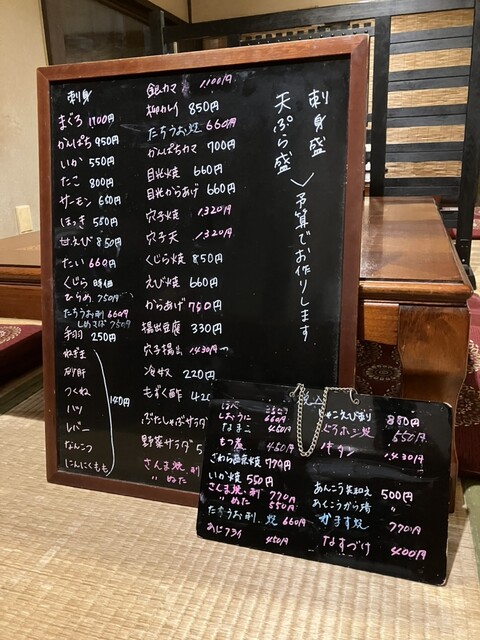 刺身
まぐろ 1100円
かんぱち 950円
いか 550円
たこ 800円
サーモン 650円
ほっき 550円
甘えび 850円
たい 660円
くじら 時価
ひらめ 750円
たちうお刺 660円
しめさば 750円
手羽 250円
ねぎま
砂肝
つくね
ハツ
レバー
なんこつ
にんにくもも
140円
銀カマ 1,100円
柳カレイ 850円
たちうお焼 660円
かんぱちカマ 700円
目光焼 660円
目光からあげ 660円
穴子焼 1,320円
穴子天 1,320円
くじら焼 850円
えび焼 660円
からあげ 750円
揚出豆腐 330円
穴子揚出 1,430円
冷奴 220円
もずく酢 420
ぶたしゃぶサラダ
野菜サラダ 5
さんま焼・刺
〃 ぬた
刺身盛
天ぷら盛
予算でお作りします
しおうに 660円
なまこ 450円
もつ煮 450円
さわら西京焼 770円
いか焼 550円
さんま焼・刺 770円
〃 ぬた 550円
たちうお刺、焼 660円
あじフライ 450円
880円
550円
牛タン 1,430円
あんこう共和え 500円
あんこうから揚 〃
かます焼 770円
なすづけ 400円